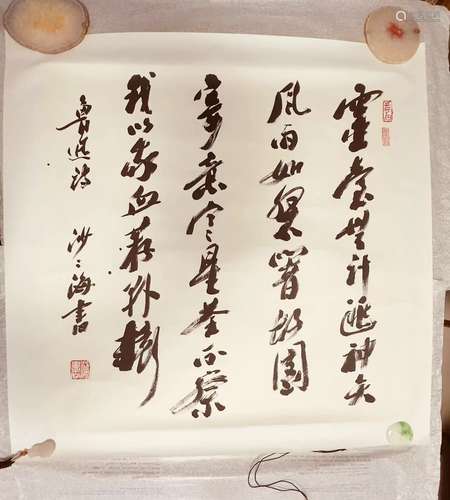 靈臺無計逃神矢
風雨如磐闇故園
寄意寒星荃不察
我以我血薦軒轅
魯迅詩 沙孟海書